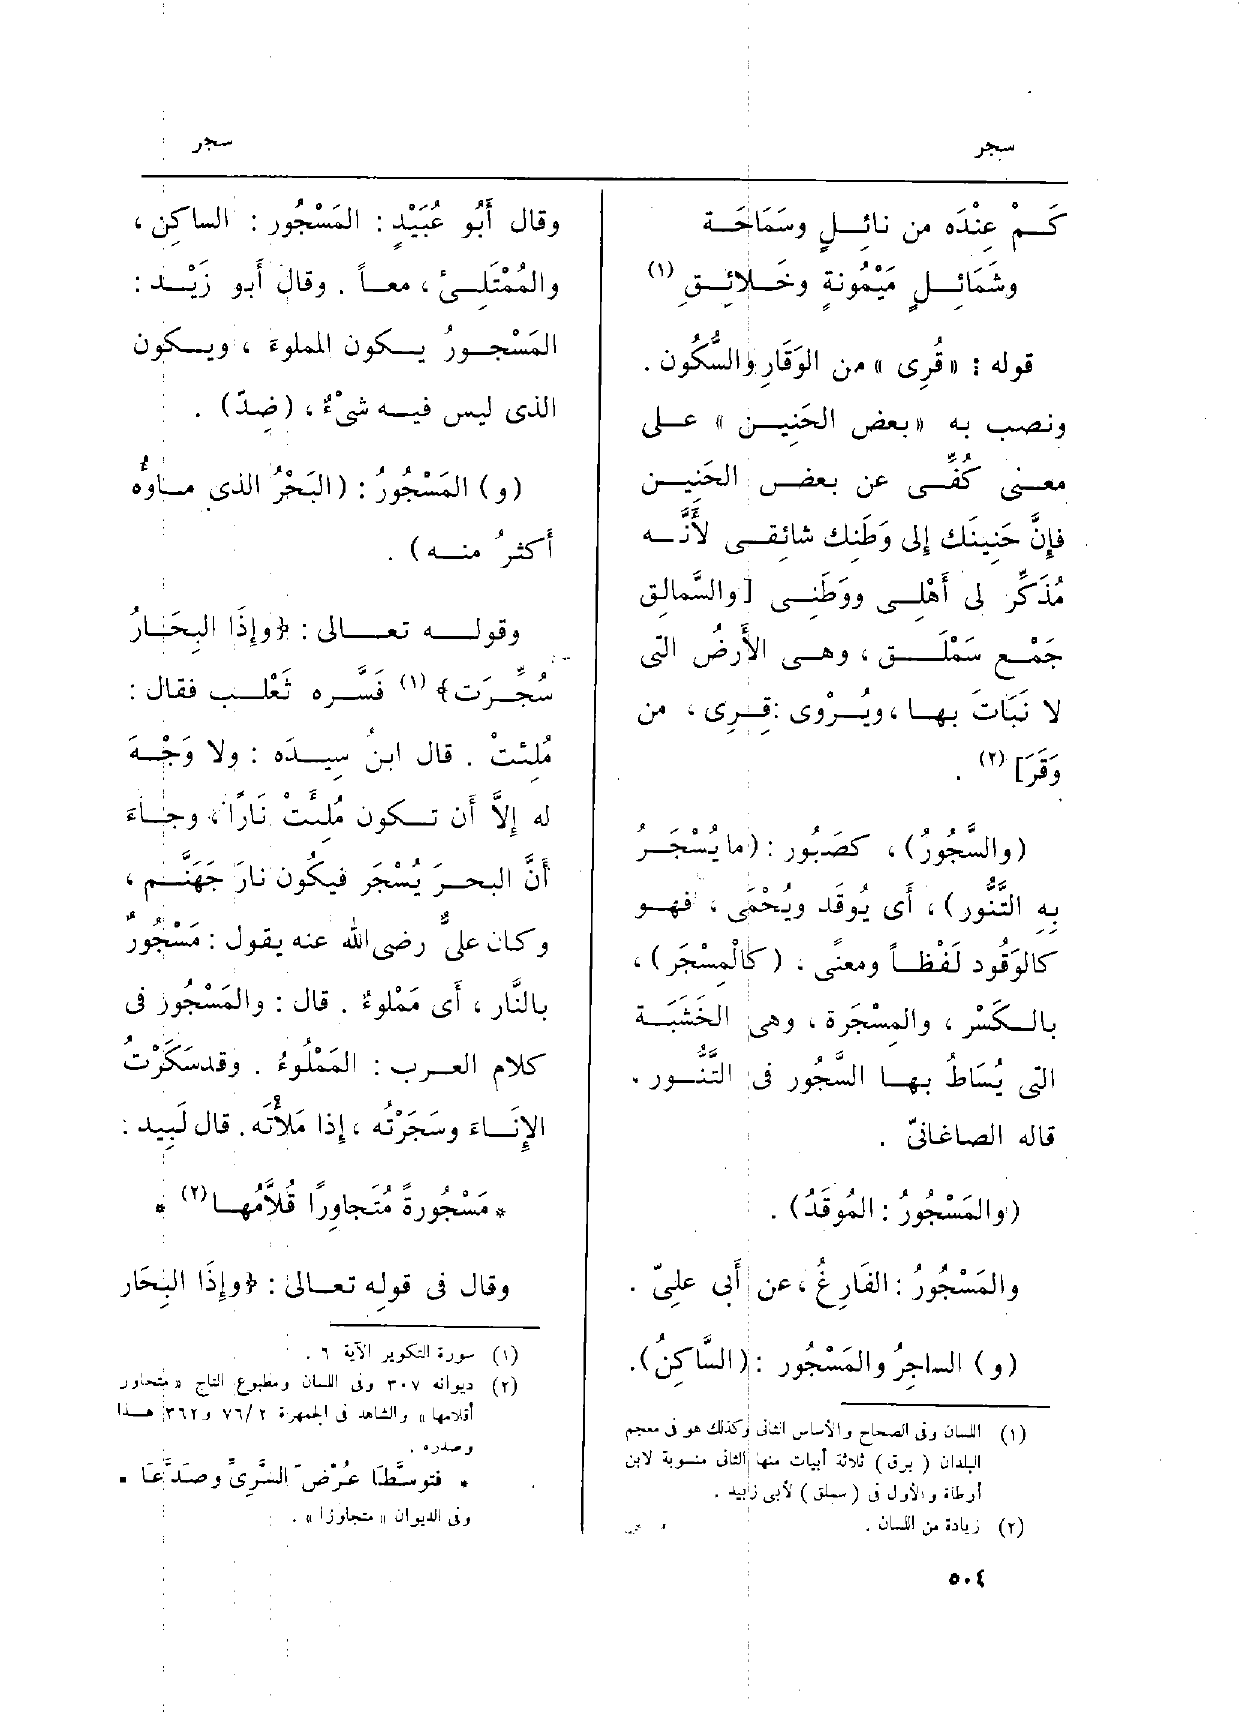 سجر
سجر
كَـمْ عِنْدَه من نائِـلٍ وسَمَاحَـة
وشَمَائِـلٍ مَيْمُونةٍ وخَـلائِـقِ (١)
قوله : «قُرِى» من الوَقَارِ والسُّكُون .
ونصب به «بعض الحَنِيـن» عـلى
معـنى كُفِّـى عن بعض الحَنِيـن
فإِنَّ حَنِينَك إلى وَطَنِك شائقـى لأَنَّـه
مُذَكِّر لى أَهْلِـى ووَطَنِـى [والسَّمالق
جَمْـع سَمْلَـق ، وهـى الأَرضُ التى
لا نَبَاتَ بهـا ، ويُـرْوى : قِـرِى ، من
وَقَرَ] (٢) .
(والسَّجُورُ) ، كصَبُور : (ما يُسْجَـرُ
بِهِ التَّنُّور) ، أَى يُوقَد ويُحْمَى ، فهـو
كالوَقُود لَفْظـاً ومعنًى . (كالْمِسْجَر) ،
بالـكَسْر ، والمِسْجَرة ، وهى الخَشَبَـة
التى يُسَاطُ بهـا السَّجُور فى التَّنُّـور .
قاله الصاغانىّ .
(والمَسْجُورُ : المُوقَدُ) .
والمَسْجُورُ : الفَارِغُ ، عن أَبى علىّ .
(و) الساجِرُ والمَسْجُور : (السَّاكِنُ) .
(١) اللسان وفى الصحاح والأساس الثانى وكذلك هو فى معجم
البلدان ( برق ) ثلاثة أبيات منها الثانى منسوبة لابن
أرطاة والأول فى (سملق) لأبى زبيد .
(٢) زيادة من اللسان .
وقال أَبُو عُبَيْدٍ : المَسْجُور : الساكِن ،
والمُمْتَلِـئُ ، معـاً . وقال أبو زَيْـد :
المَسْجـورُ يـكون المملوءَ ، ويـكون
الذى ليس فيـه شىْءٌ ، (ضِدّ) .
(و) المَسْجُورُ : (البَحْرُ الذى مـاؤُه
أَكثرُ منـه) .
وقولـه تعـالى : ﴿وإِذَا البِحَـارُ
سُجِّـرَت﴾ (١) فَسَّـره ثَعْلـب فقال :
مُلِئتْ . قال ابنُ سِيـدَه : ولا وَجْـهَ
له إِلاَّ أَن تـكون مُلِئَتْ نَارًا ، وجـاءَ
أَنَّ البحـرَ يُسْجَر فيكُون نارَ جَهَنَّـم ،
وكان علىٌّ رضى الله عنه يقول : مَسْجُورٌ
بالنَّار ، أَى مَمْلوءٌ . قال : والمَسْجُور فى
كلام العرب : المَمْلُوءُ . وقد سَكَرْتُ
الإِنَـاءَ وسَجَرْتُه ، إِذا مَلأْتَه . قال لَبِيد :
* مَسْجُورةً مُتَجاورًا قُلاَّمُهـا (٢) *
وقال فى قوله تعـالى : ﴿وإِذَا البِحَار
(١) سورة التكوير الآية ٦ .
(٢) ديوانه ٣٠٧ وفى اللسان ومطبوع التاج « متجاور
أقلامها » والشاهد فى الجمهرة ٢/٧٦ و ٣٦٢ هـذا
وصدره .
* فتوسَّطَا عُرْضَ السَّرِىِّ وصَدَّعَا *
وفى الديوان « متجاوزا » .
٥٠٤